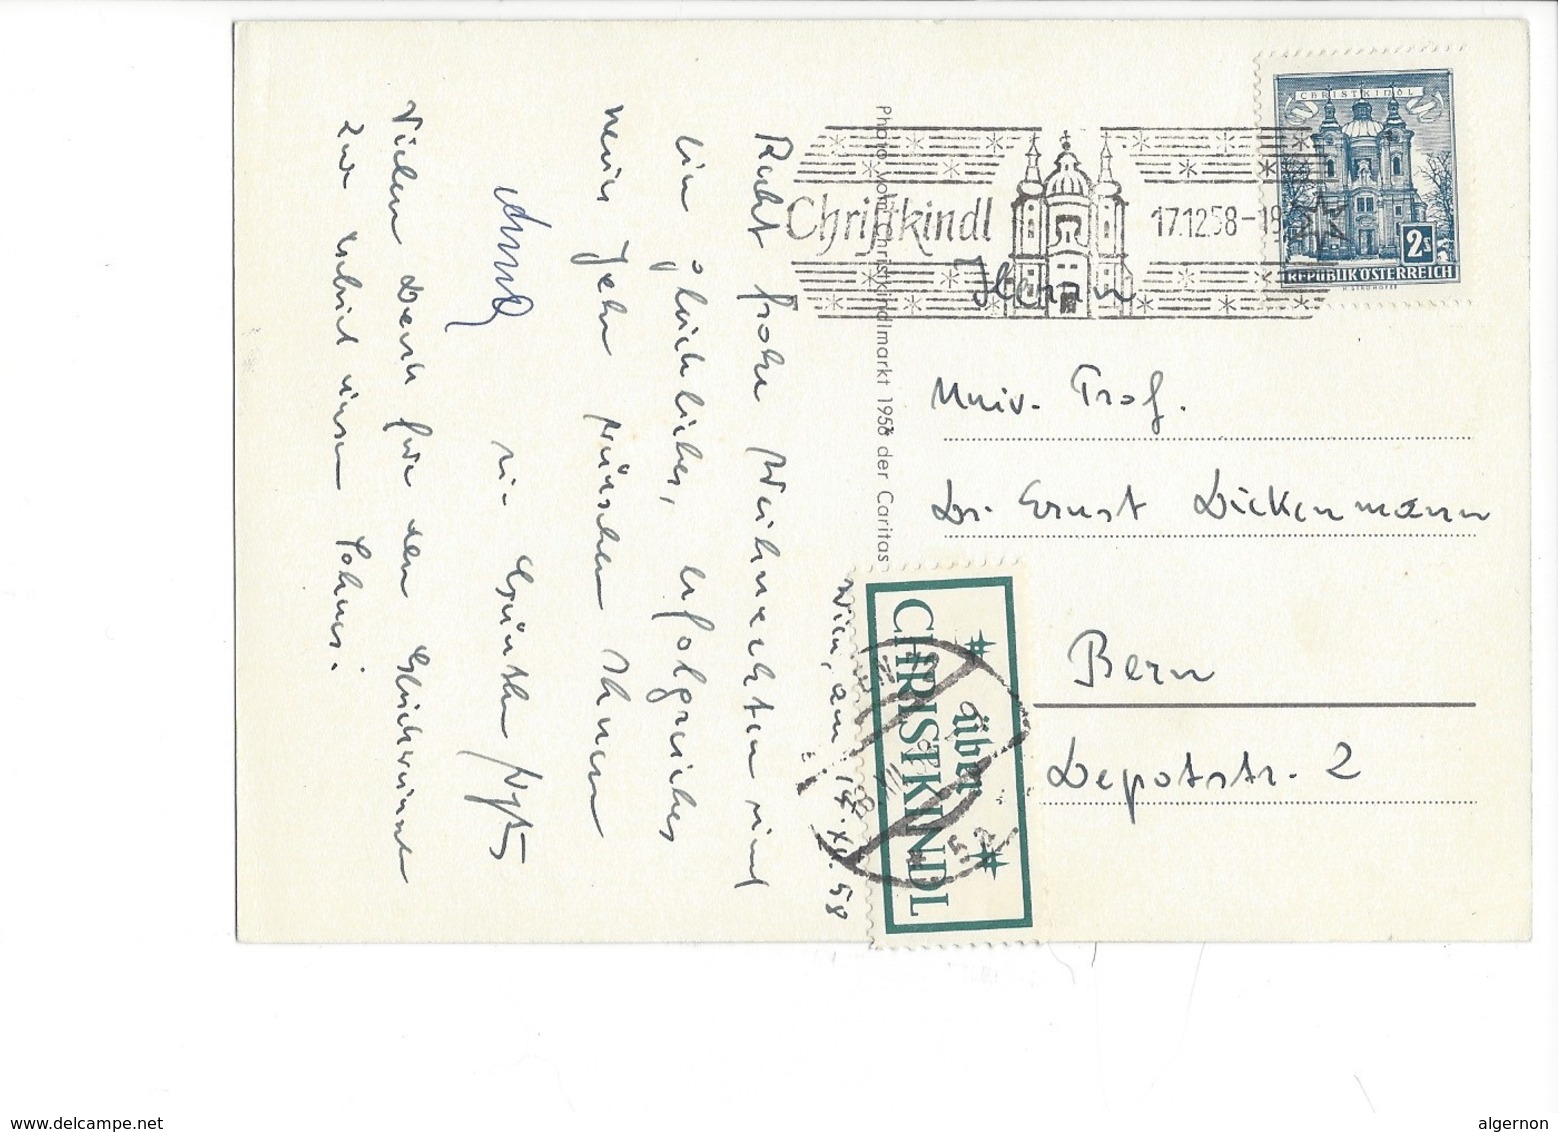 CHRISTKINDL
2s
REPUBLIK ÖSTERREICH
Christkindl
17.12.58-18
Herrn
Univ. Prof.
Dr. Ernst Dickenmann
Bern
Depotstr. 2
Photo vom Christkindlmarkt 1958 der Caritas
über
CHRISTKINDL
Wien, am 14. XII. 58
Recht frohe Weihnachten und
ein glückliches, erfolgreiches
neues Jahr wünschen Ihnen
Günther
Vielen Dank für den Glückwunsch
zur Geburt unseres Sohnes.
www.delcampe.net
algernon